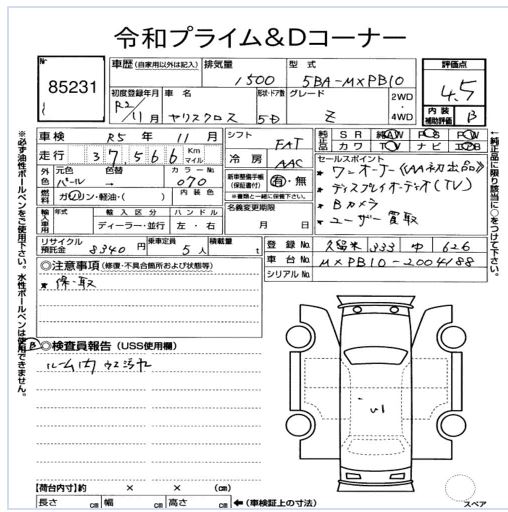 令和プライム&Dコーナー
No 85231
車歴 (自家用以外は記入) 排気量 1500 型式 5BA-MXPB10
初度登録年月 R2/11月 車名 ヤリスクロス 形状・ドア数 5D グレード Z 2WD ・ 4WD
評価点 4.5
内装補助評価 B
車検 R5年 11月 シフト FAT
走行 37,566 Km マイル 冷房 AAC
純正品 SR 純AW PS PW
純正品 カワ TV ナビ エアB
外色 元色 パール 色替 カラーNo 070
燃料 ガソリン・軽油・( ) 内装色
新車整備手帳 (保証書付) 有・無
※書類と一緒に保管下さい。
セールスポイント
* ワンオーナー《AA初出品》
* ディスプレイオーディオ(TV)
* Bカメラ
* ユーザー買取
輸入車用 年式 輸入区分 ディーラー・並行 ハンドル 左・右
名義変更期限 月 日
リサイクル預託金 8340円 乗車定員 5人 積載量 t
登録No. 久留米 333 ゆ 626
車台No. MXPB10-2004188
シリアルNo.
◎注意事項 (修復・不具合箇所および状態等)
* 保・取
B ◎検査員報告 (USS使用欄)
ルーム内 ウス汚ヤ
【荷台内寸】約 × × (cm)
長さ cm 幅 cm 高さ cm ←(車検証上の寸法)
スペア
※必ず油性ボールペンをご使用下さい。水性ボールペンは使用できません。
←純正品に限り該当に○をつけて下さい。